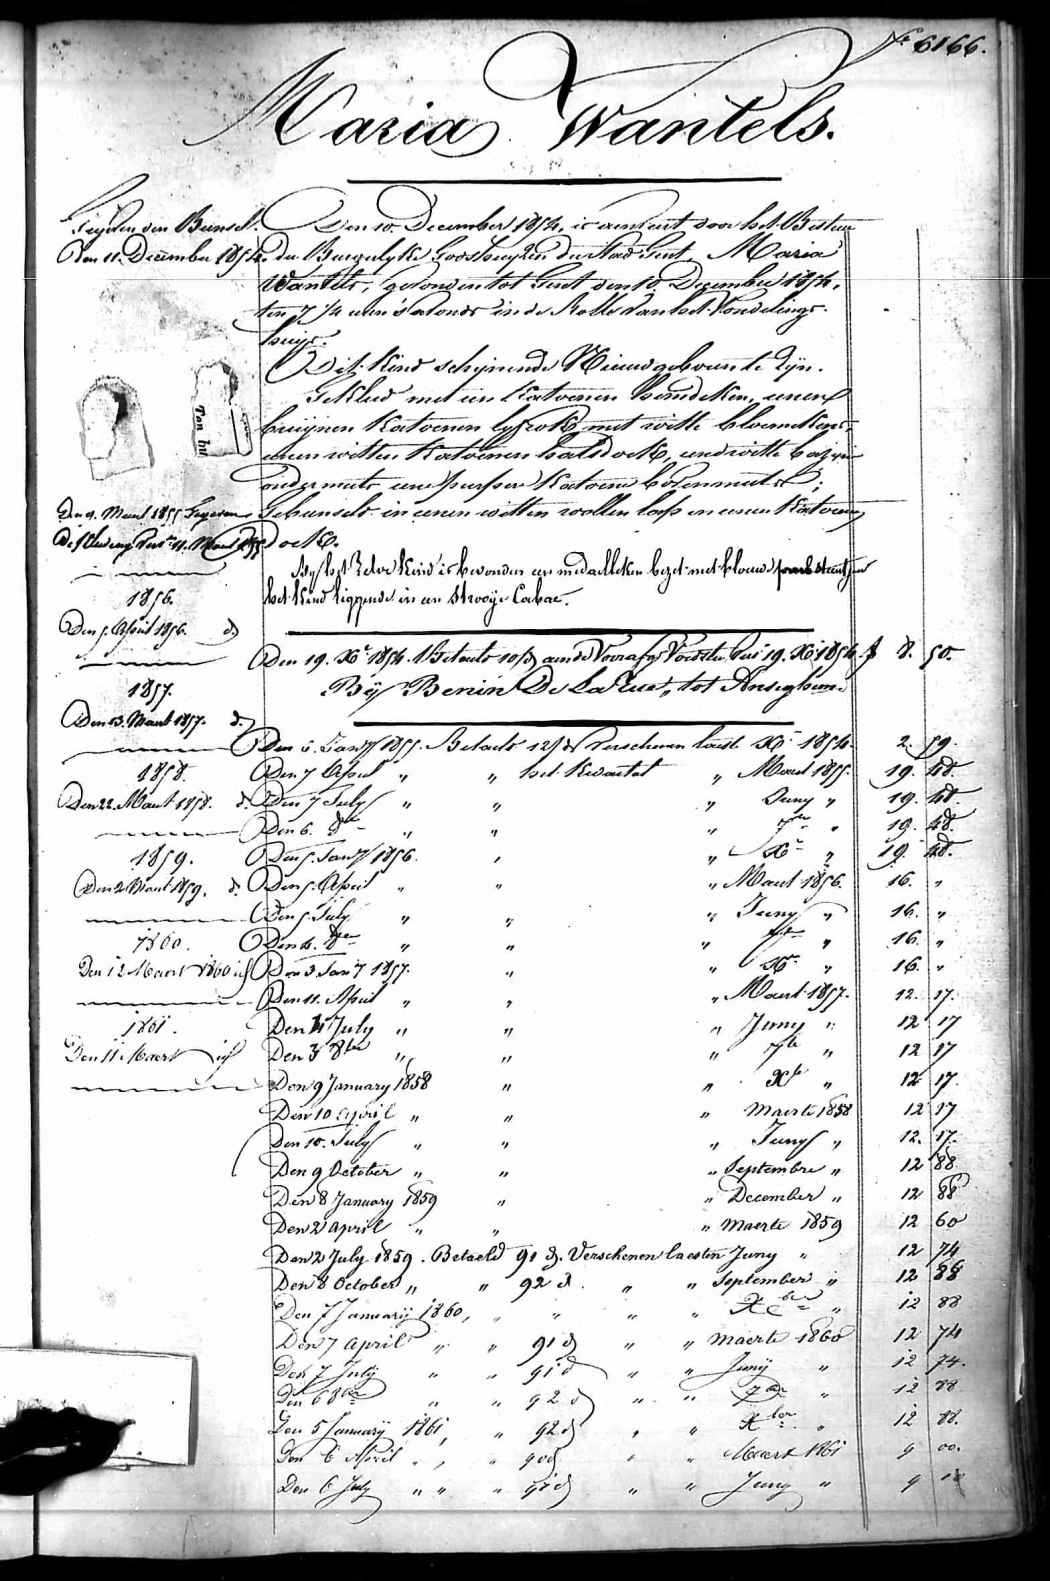 N.º 6166.
Maria Wantels.
Den 10 December 1854, is aenveert door het Bestuur
Den 11. December 1854.
der Burgerlyke Godshuyzen der Stad Gent, Maria
Wantels, gevonden tot Gent den 10 December 1854,
ten 7 1/4 uren 's avonds in de Rolle van het Vondelings-
huys.
Dit Kind schijnende Nieuwgeboren te Zyn.
Gekleed met een Katoenen hemdeken, eenen
bruijnen Katoenen lyfrok met witte bloemekens,
eenen witten Katoenen halsdoek, eene witte
ondermuts eene purpere Katoene bovenmuts;
Gebunseld in eenen witten wollen lap en eenen Katoenen
doek.
Ton
Den 9. Maert 1855
By het Zelve Kind is bevonden een medaelleken bezet met blauwe
het Kind liggende in een Strooije Cabae.
1856.
Den 5. April 1856. d.
Den 19. Xb 1854. Betaeld 10 d aende Voorafg Voedster 19. Xb 1854. f 8. 50.
By Benin De La Rue, tot Anseghem.
1857.
Den 13. Maert 1857. d.
Den 6. Jany 1855. Betaeld 12 d Verschenen laest Xb 1854. 2. 59.
1858.
Den 7 April " " het Kwartael " Maert 1855. 19. 48.
Den 22. Maert 1858. d.
Den 7 July " " " Juny " 19. 48.
Den 6. 8bre " " " 7bre " 19. 48.
1859.
Den 5. Jany 1856. " " Xbr " 19. 48.
Den 2 Maert 1859. d.
Den 5. April " " " Maert 1856. 16. "
Den 5. July " " " Juny " 16. "
1860.
Den 4. 8bre " " " 7bre " 16. "
Den 12 Maert 1860
Den 3 Jany 1857. " " Xbr " 16. "
Den 11. April " " " Maert 1857. 12. 17.
1861.
Den 11 July " " " Juny " 12 17
Den 11 Maert
Den 3 8bre " " " 7bre " 12 17
Den 9 January 1858 " " Xbr " 12 17.
Den 10 April " " " Maerte 1858 12 17
Den 10. July " " " Juny " 12. 17.
Den 9 October " " " Septembre " 12 88
Den 8 January 1859 " " December " 12 88
Den 2 April " " " Maerte 1859 12 60
Den 2 July 1859. Betaeld 91 d. Verschenen laesten Juny " 12 74
Den 8 October " " 92 d. " " September " 12 88
Den 7 January 1860, " " " " Xbre " 12 88
Den 7 April " " 91 d " " Maerte 1860 12 74
Den 7 July " " 91 d " " Juny " 12 74.
Den 6 8bre " " 92 d " " 7bre " 12 88
Den 5 January 1861, " 92 d " " Xber " 12 88.
Den 6 April " , " 90 d " " Maert 1861 9 00.
Den 6 July " " " 91 d " " Juny " 9